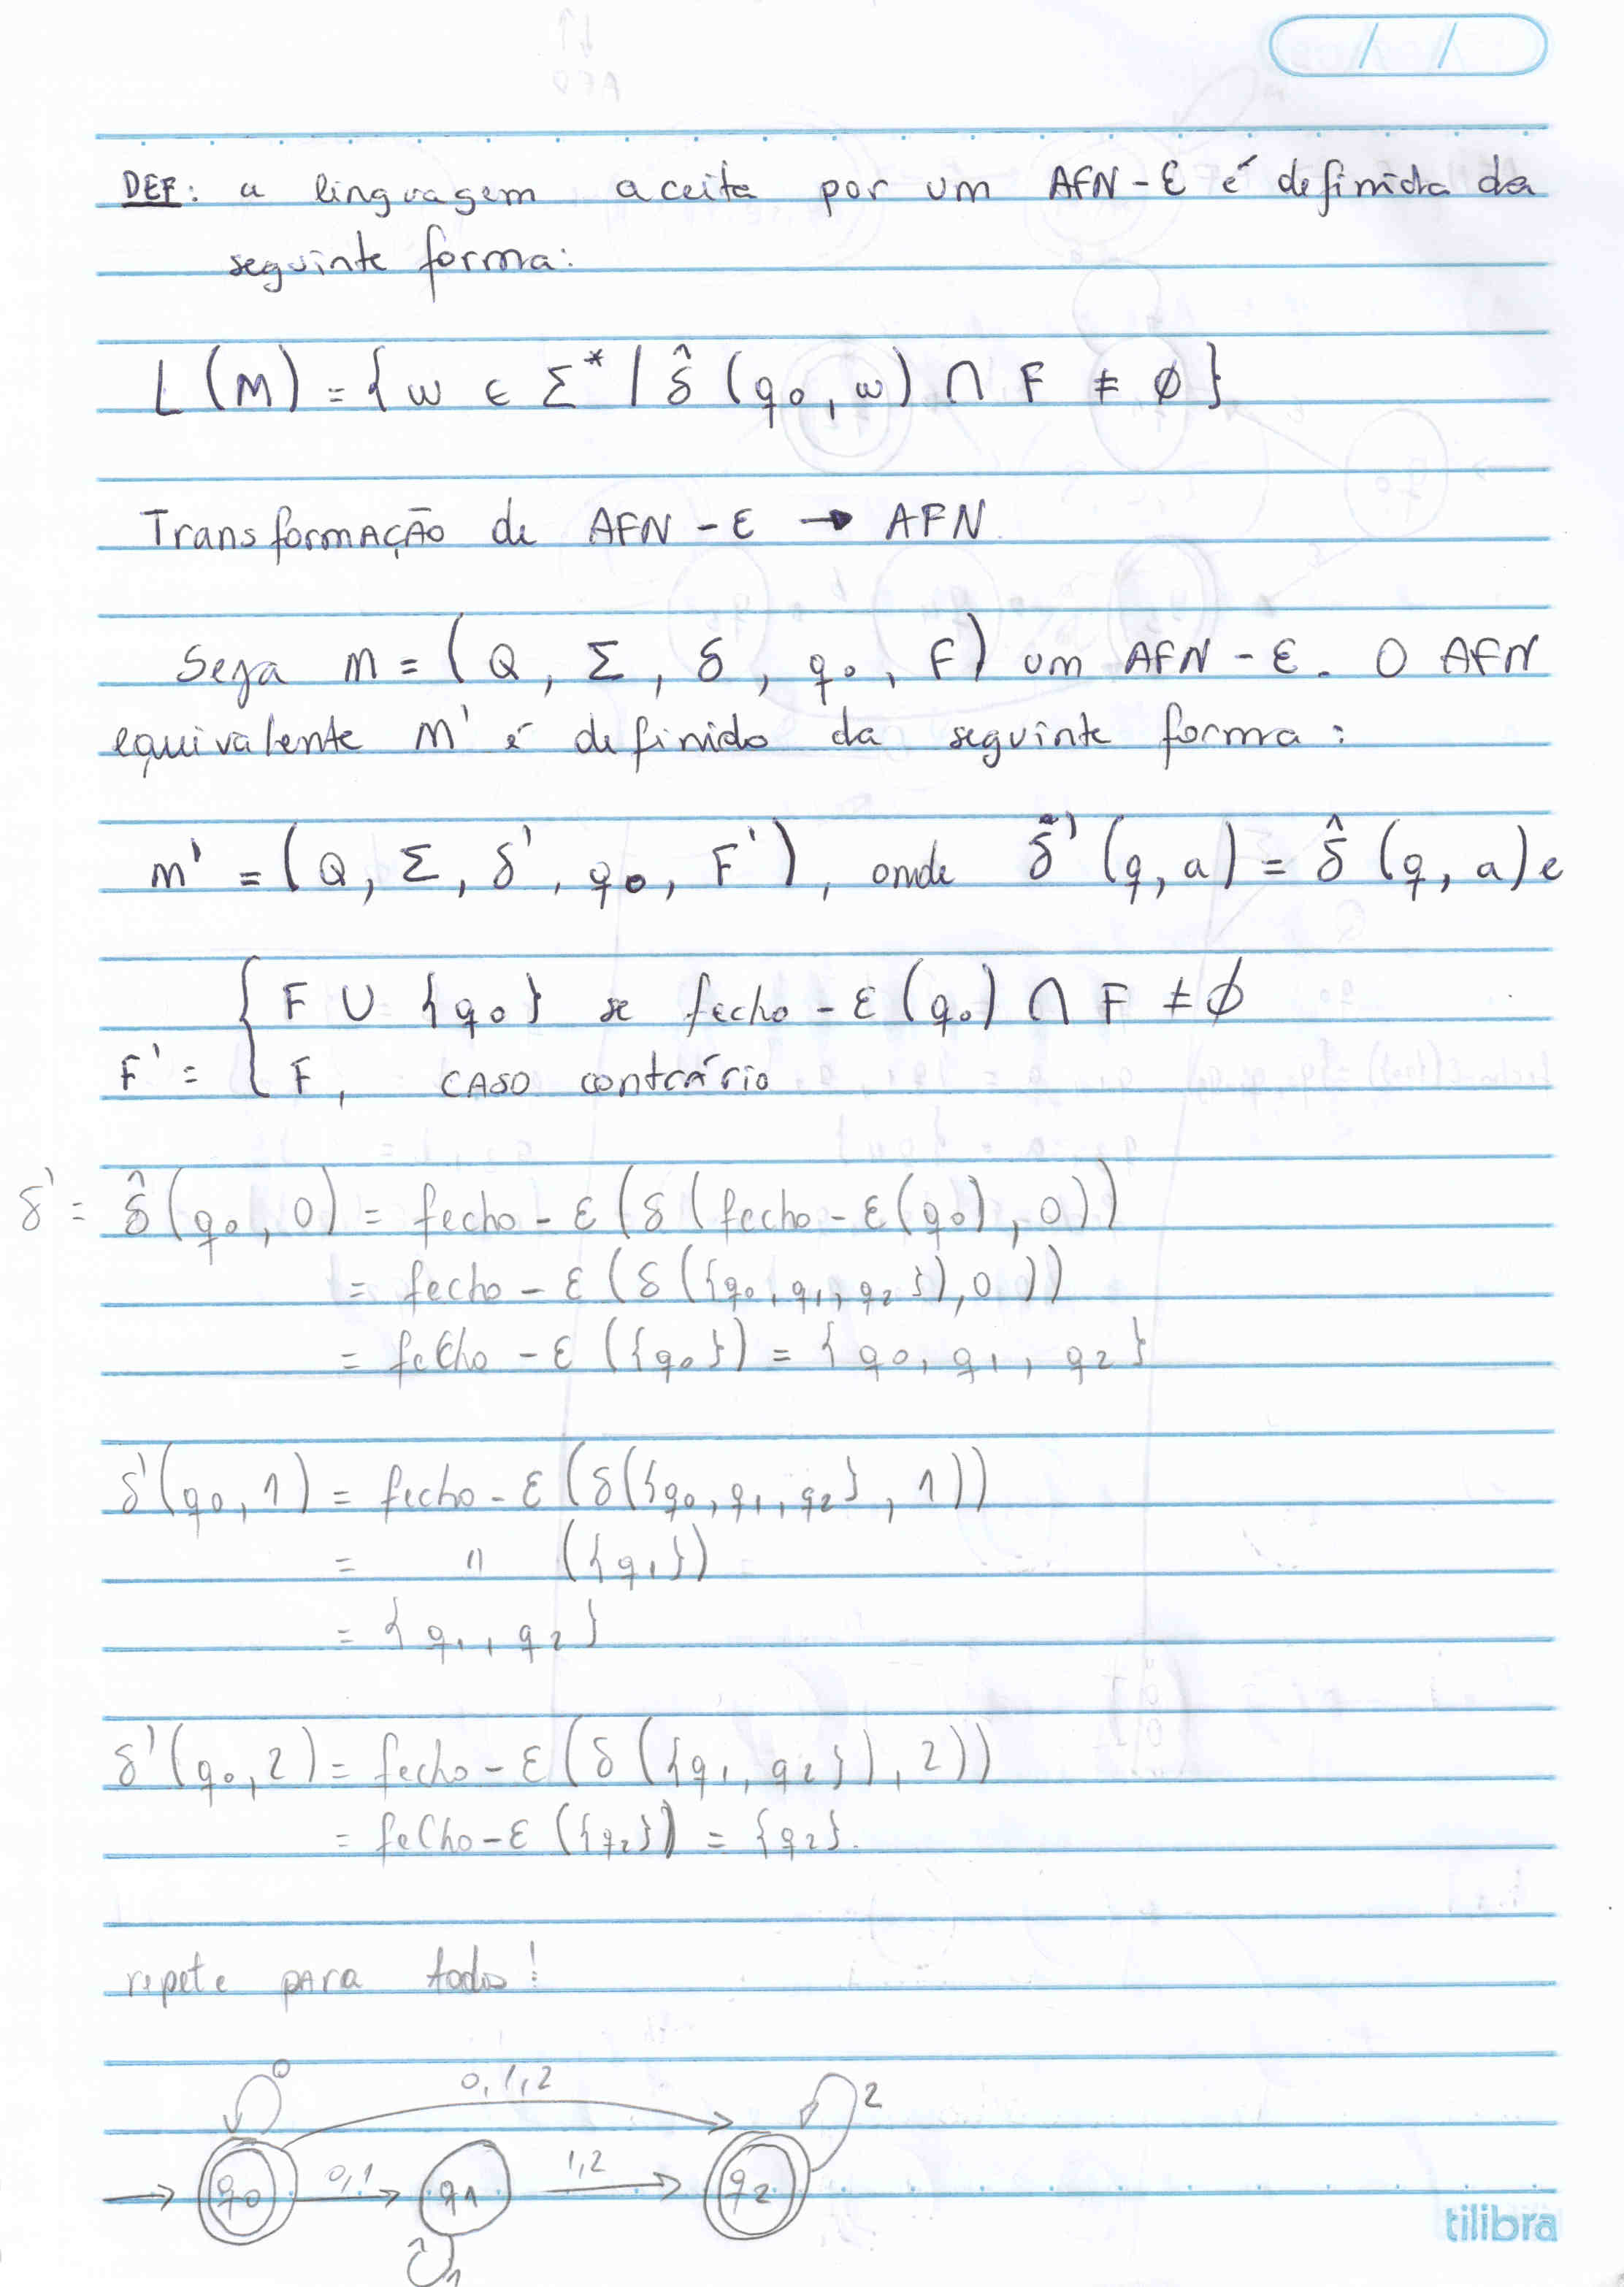 DEF: a linguagem aceita por um AFN-ε é definida da
seguinte forma:
L(M) = {w ∈ Σ* / δ̂ (q0, w) ∩ F ≠ ∅}
Transformação de AFN-ε → AFN
Seja M = (Q, Σ, δ, q0, F) um AFN-ε. O AFN
equivalente M' é definido da seguinte forma:
M' = (Q, Σ, δ', q0, F'), onde δ̂' (q, a) = δ̂ (q, a) e
F ∪ {q0} se fecho-ε(q0) ∩ F ≠ ∅
F' = { F, caso contrário
δ' = δ̂(q0, 0) = fecho-ε(δ(fecho-ε(q0), 0))
= fecho-ε(δ({q0, q1, q2}), 0))
= fecho-ε({q0}) = {q0, q1, q2}
δ'(q0, 1) = fecho-ε(δ({q0, q1, q2}, 1))
= " ({q1})
= {q1, q2}
δ'(q0, 2) = fecho-ε(δ({q1, q2}), 2))
= fecho-ε({q2}) = {q2}.
repete para todos!
0 0,1,2 2
q0 0,1 q1 1,2 q2
1
tilibra